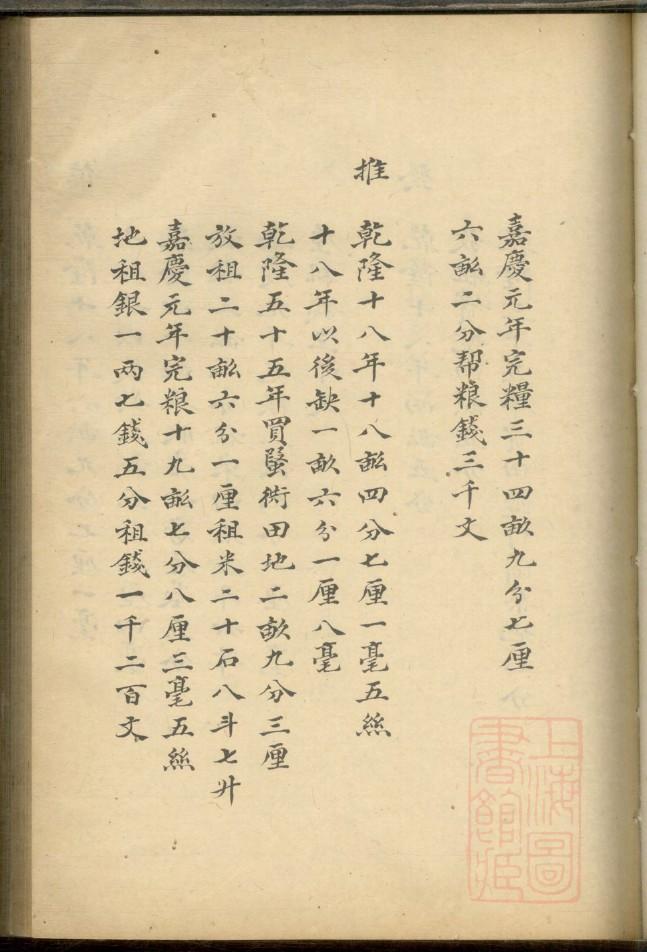 嘉慶元年完糧三十四畝九分七厘
六畝二分帮粮錢三千文
推
乾隆十八年十八畝四分七厘一毫五絲
十八年以後缺一畝六分一厘八毫
乾隆五十五年買蚤術田地二畝九分三厘
放租二十畝六分一厘租米二十石八斗七升
嘉慶元年完粮十九畝七分八厘三毫五絲
地租銀一两七錢五分租錢一千二百文
上海圖書館藏